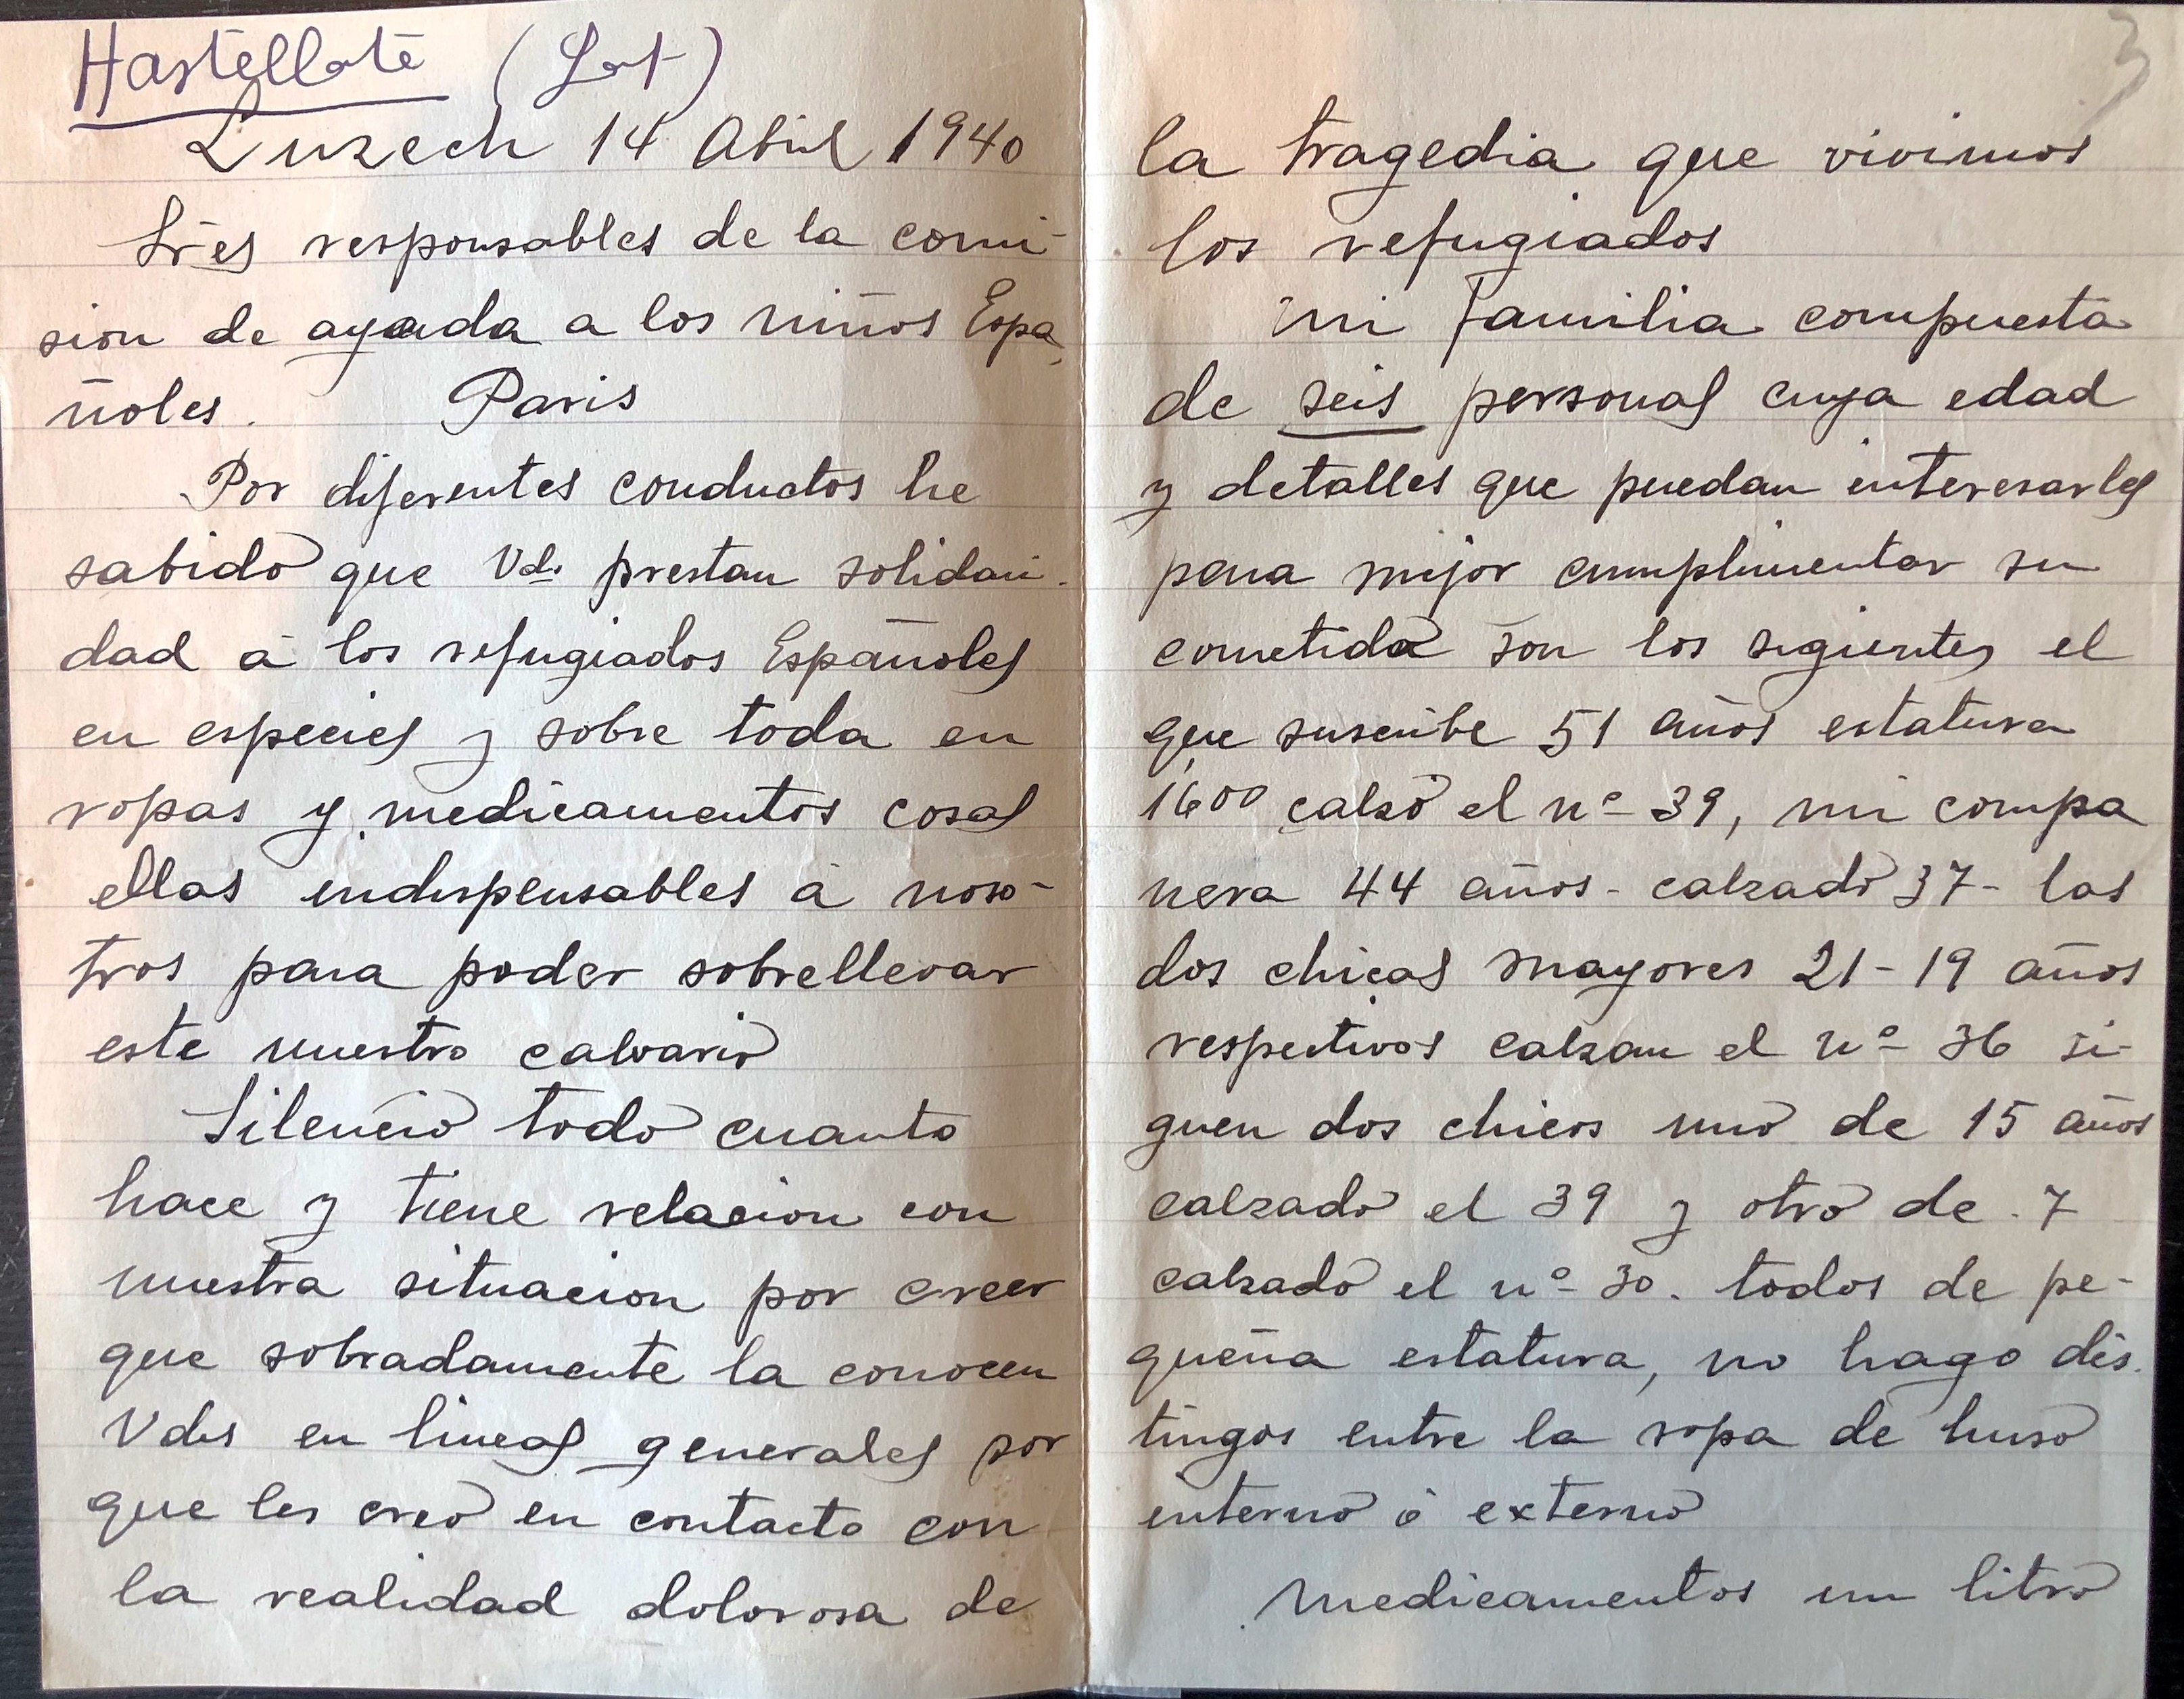 Hastellote (Lot)
Luzech 14 Abril 1940
Sres responsables de la comi-
sion de ayuda a los niños Espa-
ñoles. Paris
Por diferentes conductos he
sabido que Vds. prestan solidari-
dad á los refugiados Españoles
en especies y sobre toda en
ropas y medicamentos cosas
ellas indispensables á noso-
tros para poder sobrellevar
este nuestro calvario
Silencio todo cuanto
hace y tiene relacion con
nuestra situacion por creer
que sobradamente la conocen
Vds en lineas generales por
que les creo en contacto con
la realidad dolorosa de
3
la tragedia que vivimos
los refugiados
mi familia compuesta
de seis personas cuya edad
y detalles que puedan interesarles
para mejor cumplimentar su
cometida son los sigientes el
que suscribe 51 años estatura
1600 calzo el nº 39, mi compa
nera 44 años - calzado 37 - las
dos chicas mayores 21 - 19 años
respectivos calzan el nº 36 si-
guen dos chicos uno de 15 años
calzado el 39 y otro de 7
calzado el nº 30. todos de pe-
queña estatura, no hago dis-
tingos entre la ropa de huso
interno ó externo
medicamentos un litro